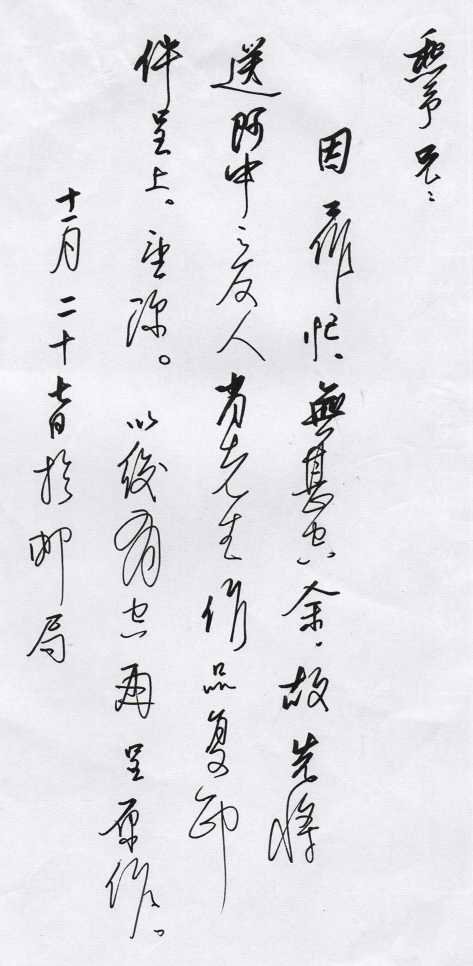 兄:
因工作忙、無甚空余.故先将
送阿中之友人肖先生作品复印
件呈上。望谅。以後有空再呈原作。
十一月二十七日於邮局